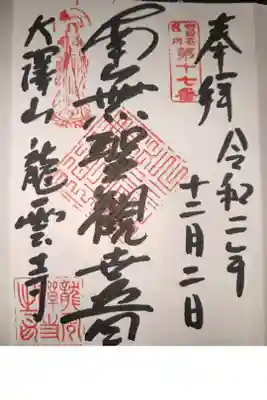 奉拝
令和二年
十二月二日
第十七番
南無聖観世音
大澤山 龍雲寺